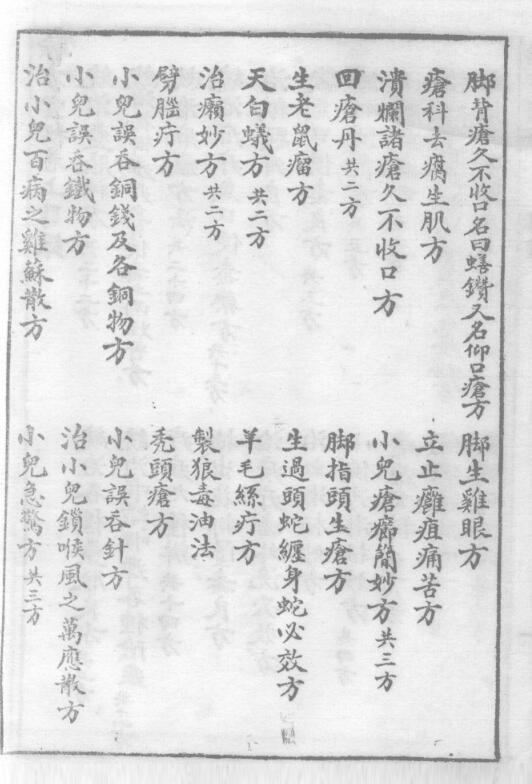 脚背瘡久不收口名曰蟮鑽又名仰口瘡方
脚生雞眼方
瘡科去腐生肌方
立止癰疽痛苦方
潰爛諸瘡久不收口方
小兒瘡癤簡妙方 共三方
回瘡丹 共二方
脚指頭生瘡方
生老鼠瘤方
生過頭蛇纏身蛇必效方
天白蟻方 共二方
羊毛絲疔方
治癩妙方 共二方
製狼毒油法
劈腦疔方
禿頭瘡方
小兒誤吞銅錢及各銅物方
小兒誤吞針方
小兒誤吞鐵物方
治小兒鎖喉風之萬應散方
治小兒百病之雞蘇散方
小兒急驚方 共三方